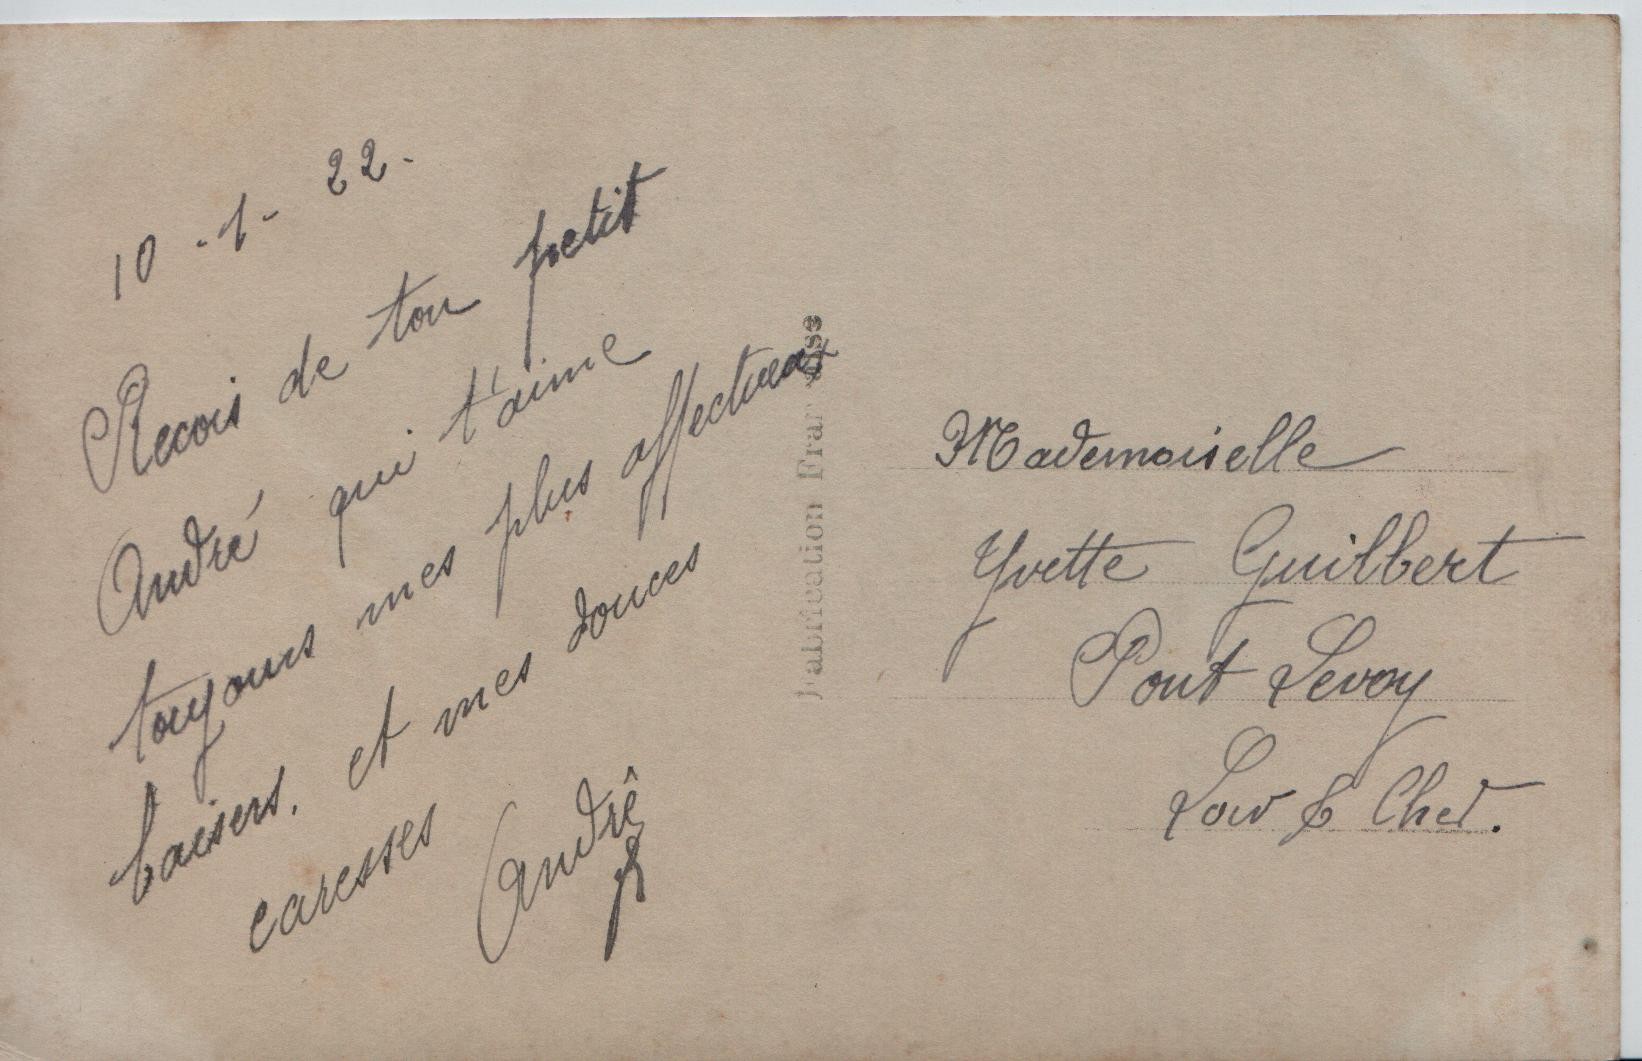 10 - 1 - 22.
Recois de ton petit
André qui t'aime
toujours mes plus affectueux
baisers. et mes douces
caresses
André
Fabrication Française
Mademoiselle
Yvette Guilbert
Pont Levoy
Loir & Cher.